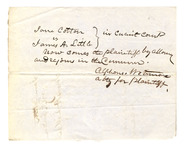 Jane Cotton } in Circuit Court
vs
James A. Little
Now comes the plaintiff by attorney
and rejoins in the Demurrer.
Alphonso Wetmore
atty for plaintiff